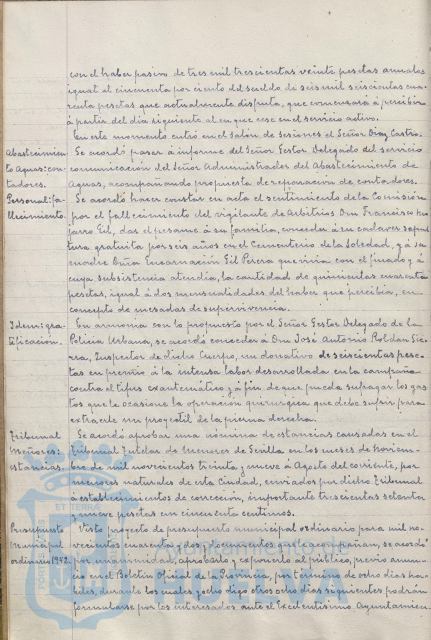 con el haber pasivo de tres mil trescientas veinte pesetas anuales
igual al cincuenta por ciento del sueldo de seis mil seiscientas cua-
renta pesetas que actualmente disfruta, que comenzará á percibir
á partir del día siguiente al en que cese en el servicio activo.
En este momento entró en el Salón de sesiones el Señor Diaz Castro.
Abastecimien-
to Aguas: con-
tadores.
Se acordó pasar á informe del Señor Gestor Delegado del servicio
comunicación del Señor Administrador del Abastecimiento de
Aguas, acompañando propuesta de reparación de contadores.
Personal: fa-
llecimiento.
Se acordó hacer constar en acta el sentimiento de la Comisión
por el fallecimiento del vigilante de Arbitrios Don Francisco Na-
jarro Gil, dar el pésame á su familia, conceder á su cadaver sepul-
tura gratuita por seis años en el Cementerio de la Soledad, y á su
madre Doña Encarnación Gil Perera que vivia con el finado y á
cuya subsistencia atendía, la cantidad de quinientas cuarenta
pesetas, igual á dos mensualidades del haber que percibía, en
concepto de mesadas de supervivencia.
Idem: gra-
tificación.
En armonia con lo propuesto por el Señor Gestor Delegado de la
Policia Urbana, se acordó conceder á Don José Antonio Roldan Sie-
rra, Inspector de dicho Cuerpo, un donativo de seiscientas pese-
tas en premio á la intensa labor desarrollada en la campaña
contra el tifus exantemático y á fin de que pueda sufragar los gas-
tos que le ocasione la operación quirúrgica que debe sufrir para
extraerle un proyectil de la pierna derecha.
Tribunal
Menores:
estancias.
Se acordó aprobar una nómina de estancias causadas en el
Tribunal Tutelar de Menores de Sevilla en los meses de Noviem-
bre de mil novecientos treinta y nueve á Agosto del corriente, por
menores naturales de esta Ciudad, enviados por dicho Tribunal
á establecimientos de corrección, importante trescientas setenta
y nueve pesetas con cincuenta centimos.
Presupuesto
municipal
ordinario 1942.
Visto proyecto de presupuesto municipal ordinario para mil no-
vecientos cuarenta y dos y documentos que le acompañan, se acordó
por unanimidad, aprobarlo y exponerlo al público, previo anun-
cio en el Boletín Oficial de la Provincia, por término de ocho dias ha-
biles, durante los cuales y ocho digo otros ocho dias siguientes podrán
formularse por los interesados ante el Excelentísimo Ayuntamien-